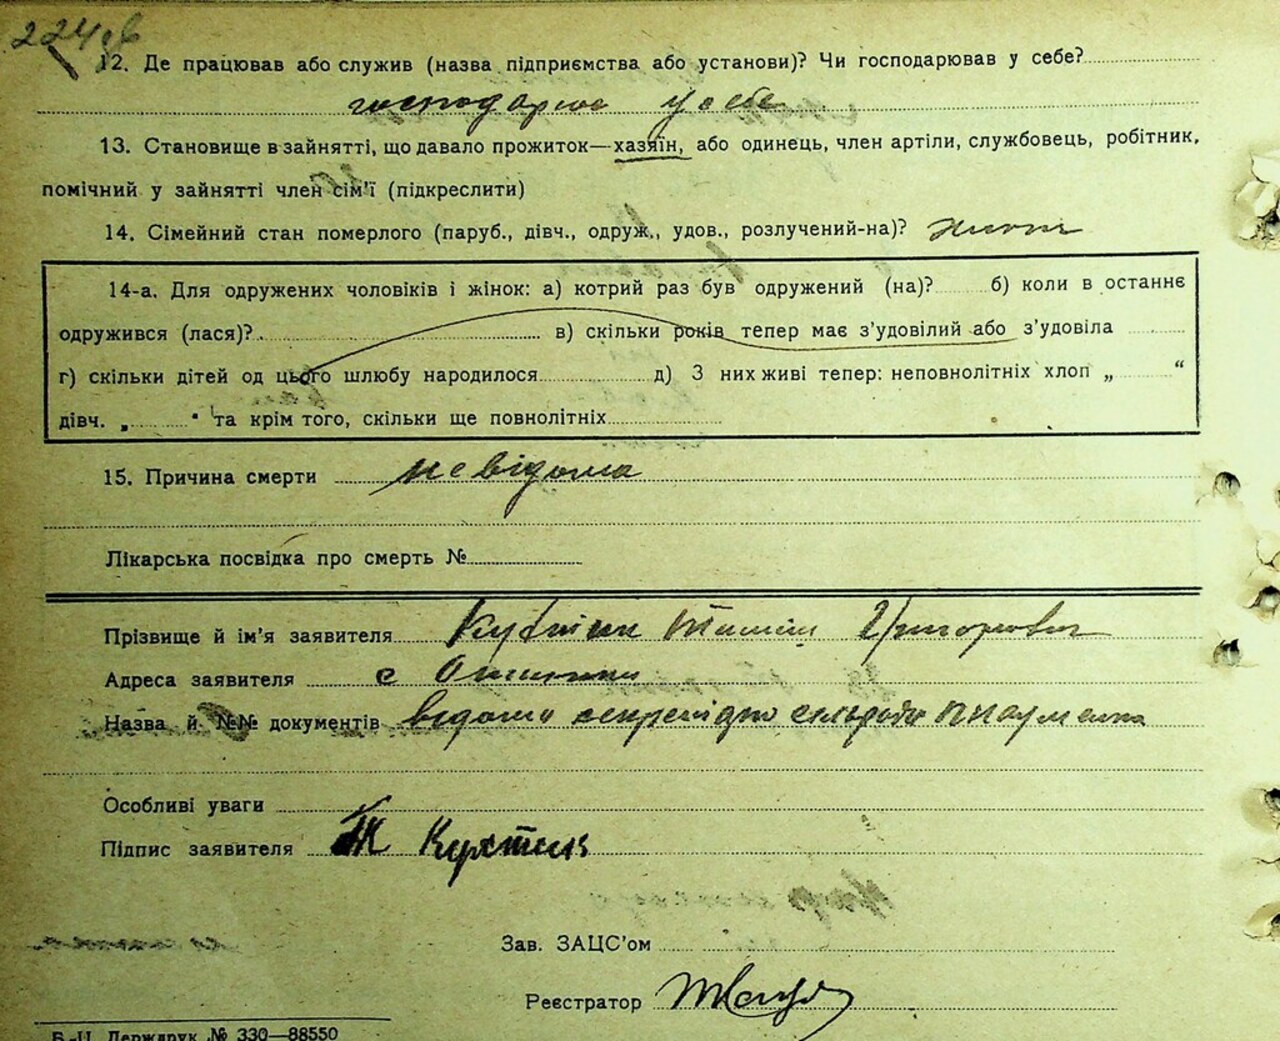 224
12. Де працював або служив (назва підприємства або установи)? Чи господарював у себе?
господарює у себе
13. Становище в зайнятті, що давало прожиток—хазяїн, або одинець, член артіли, службовець, робітник,
помічний у зайнятті член сім'ї (підкреслити)
14. Сімейний стан померлого (паруб., дівч., одруж., удов., розлучений-на)?
14-а. Для одружених чоловіків і жінок: а) котрий раз був одружений (на)? б) коли в останнє
одружився (лася)? в) скільки років тепер має з'удовілий або з'удовіла
г) скільки дітей од цього шлюбу народилося д) З них живі тепер: неповнолітніх хлоп „ “
дівч. „ “ та крім того, скільки ще повнолітніх
15. Причина смерти невідома
Лікарська посвідка про смерть №
Прізвище й ім'я заявителя Григорович
Адреса заявителя с
Назва й №№ документів
Особливі уваги
Підпис заявителя
Зав. ЗАЦС'ом
Реєстратор
Б-Ц. Держдрук № 330—88550